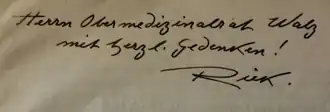 Herrn Obermedizinalrat Walz
mit herzl. Gedenken!
Riek.